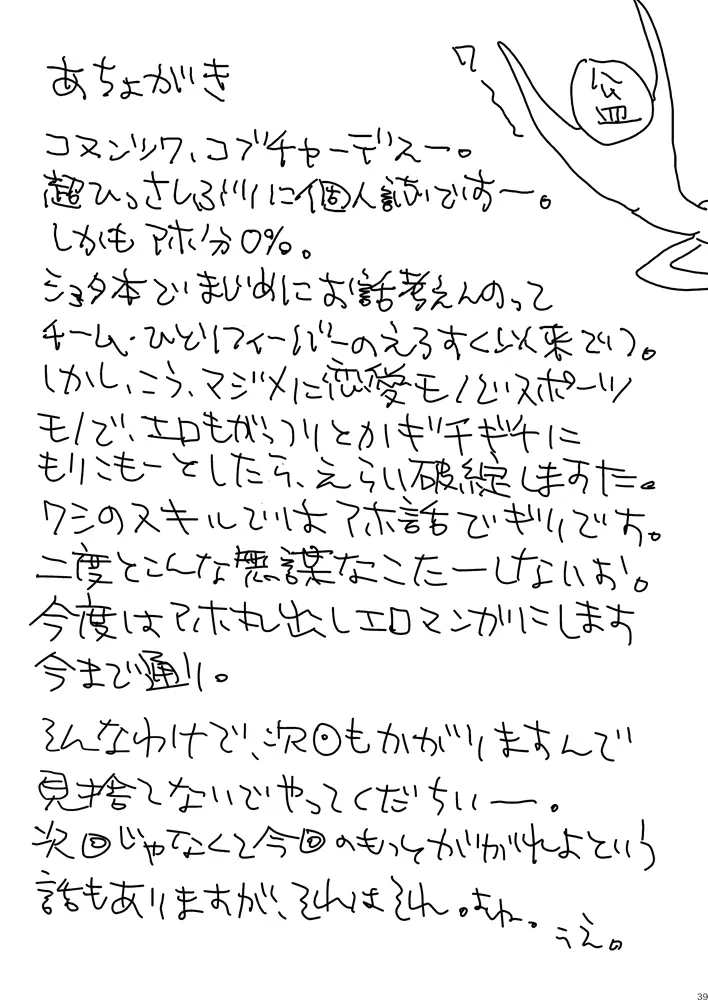 あちょがき
コヌンツワ、コブチャーデえー。
超ひっさしぶりに個人誌ですー。
しかもアホ分0%。
ショタ本でまじめにお話考えんのって
チーム・ひとりフィーバーのえろすく以来でつ。
しかし、こう、マジメに恋愛モノどスポーツ
モノで、エロもがっつりとかギチギチに
もりこもーとしたら、えらい破綻しますた。
ワシのスキルではアホ話でぎりです。
二度とこんな無謀なこたーしないお。
今度はアホ丸出しエロマンガにします
今まで通り。
そんなわけで、次回もががりますんで
見捨てないでやってくだちいー。
次回じゃなくて今回のもっとががれよという
話もありますが、それはそれ。よね。
こえ。
ワ
公皿
39